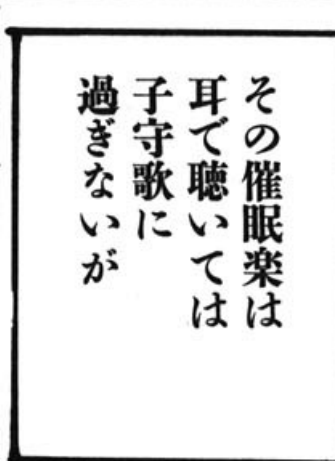 その催眠楽は
耳で聴いては
子守歌に
過ぎないが